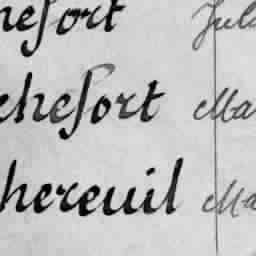 hefort Jul
chefort Ma
hereuil Ma